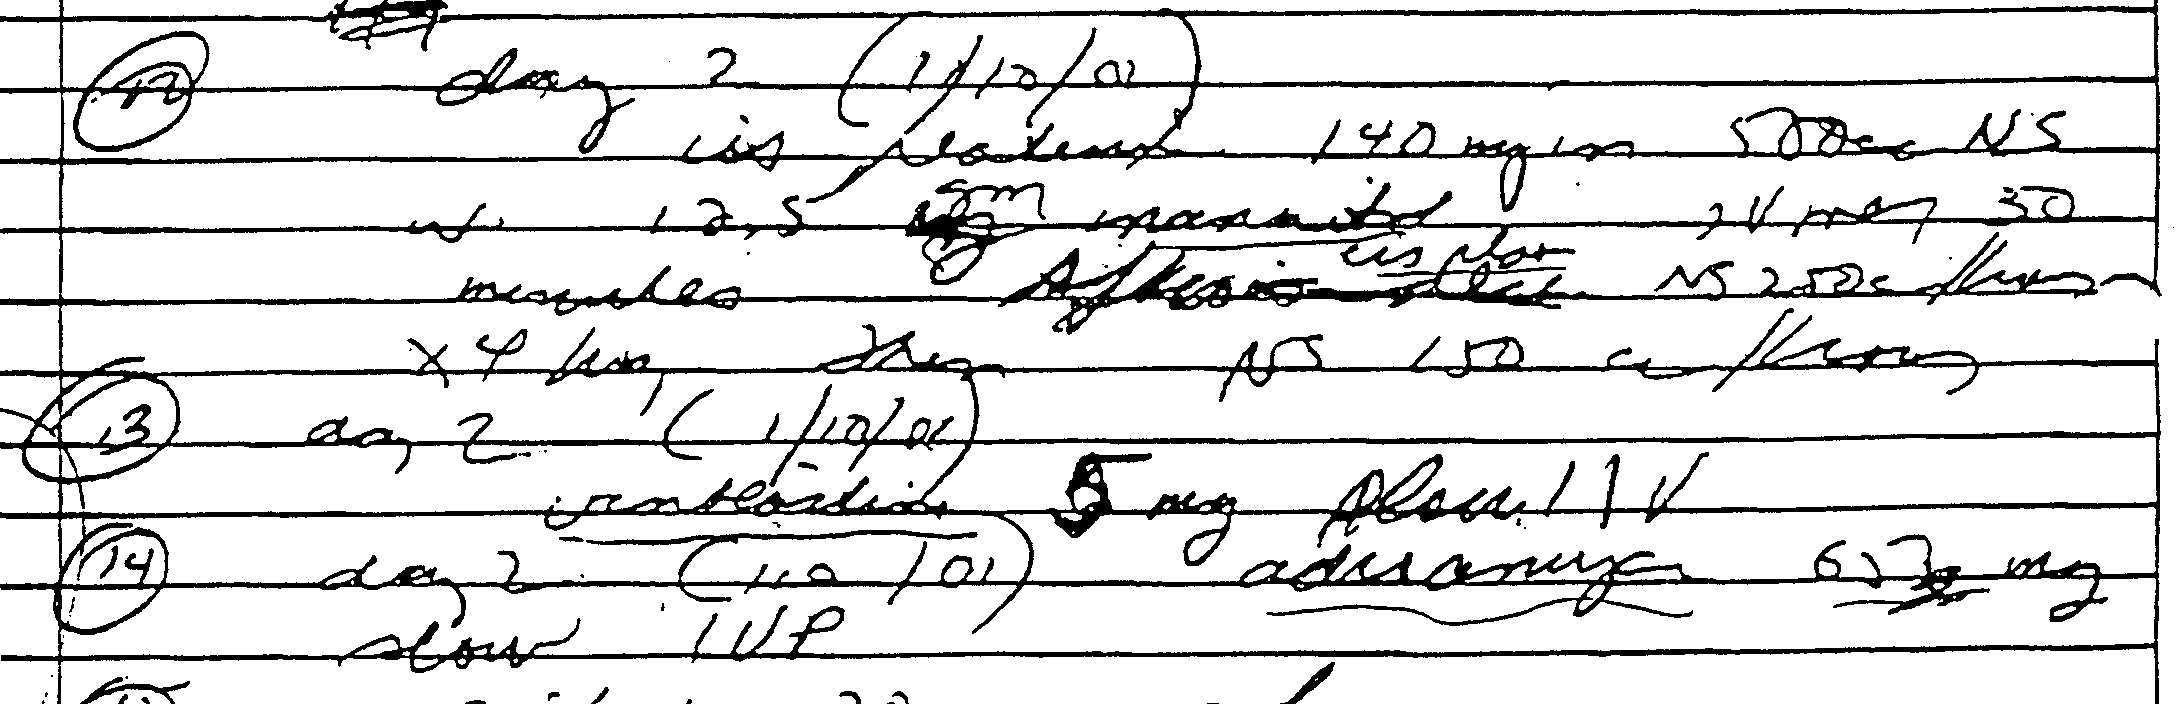 12 day 2 (1/10/01)
cis platinum 140 mg in 500cc NS
w/ 12.5 gm mannitol IV over 30
minutes After cis plat NS 250cc/hour
x 4 hrs, then NS 150 cc/hour
13 day 2 (1/10/01)
vinblastine 5 mg slow IV
14 day 2 (1/10/01) adriamycin mg
slow IVP